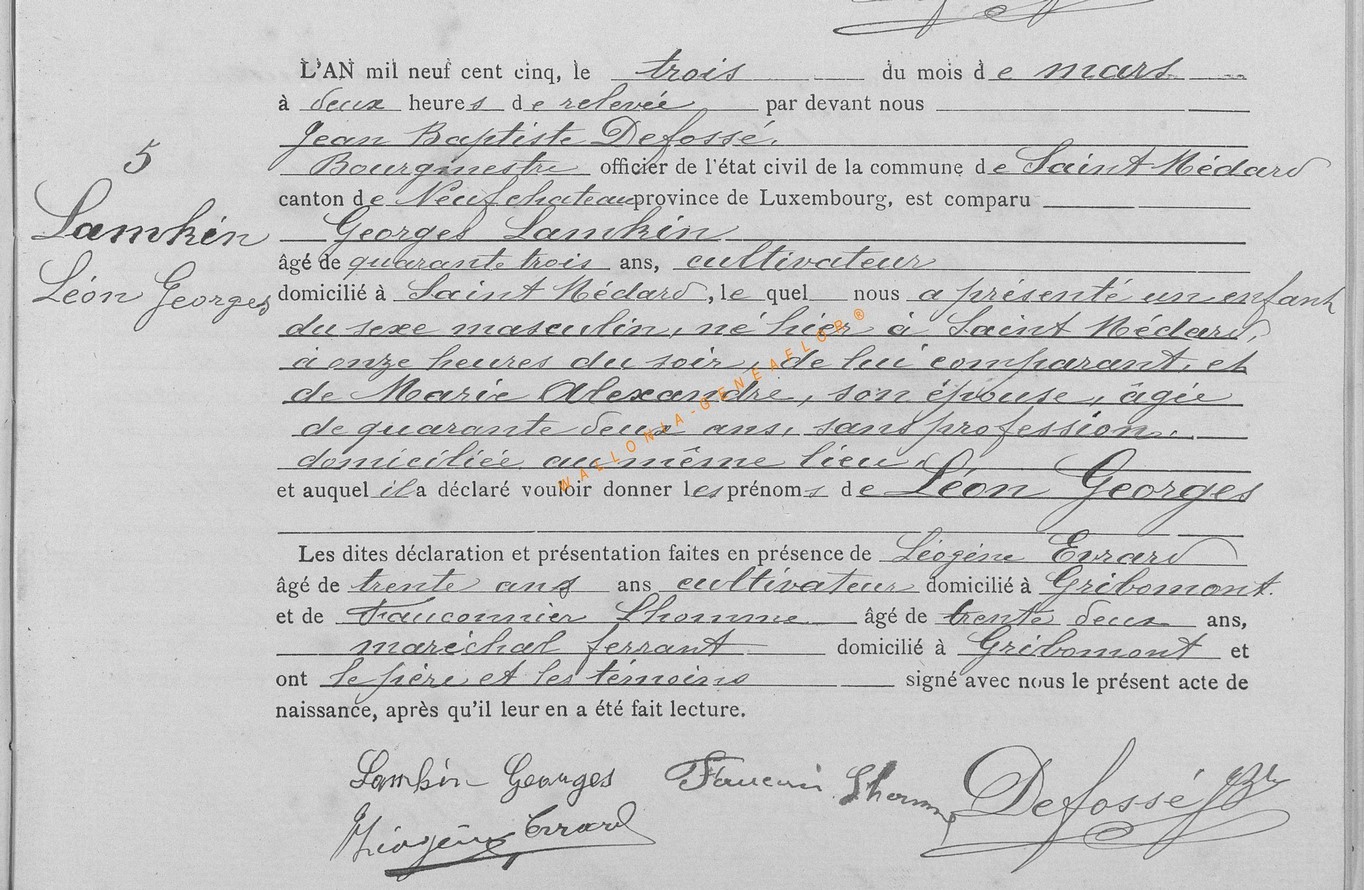 L'AN mil neuf cent cinq, le trois du mois de mars
à deux heures de relevée par devant nous
Jean Baptiste Defossé.
Bourgmestre officier de l'état civil de la commune de Saint Médard
canton de Neufchateau province de Luxembourg, est comparu
5
Lamkin
Léon Georges
Georges Lamkin
âgé de quarante trois ans, cultivateur
domicilié à Saint Médard, le quel nous a présenté un enfant
du sexe masculin, né hier à Saint Médard,
à onze heures du soir, de lui comparant, et
de Marie Alexandre, son épouse, âgée
de quarante deux ans, sans profession,
domiciliée au même lieu
et auquel il a déclaré vouloir donner les prénoms de Léon Georges
Les dites déclaration et présentation faites en présence de Léogéne Evrard
âgé de trente ans ans cultivateur domicilié à Gribomont.
et de Fauconnier Lhomme âgé de trente deux ans,
maréchal ferrant domicilié à Gribomont et
ont le père et les témoins signé avec nous le présent acte de
naissance, après qu'il leur en a été fait lecture.
Lamkin Georges Lhomme Defossé JBte
Evrard
WALLONIA-GENEAFLOR®